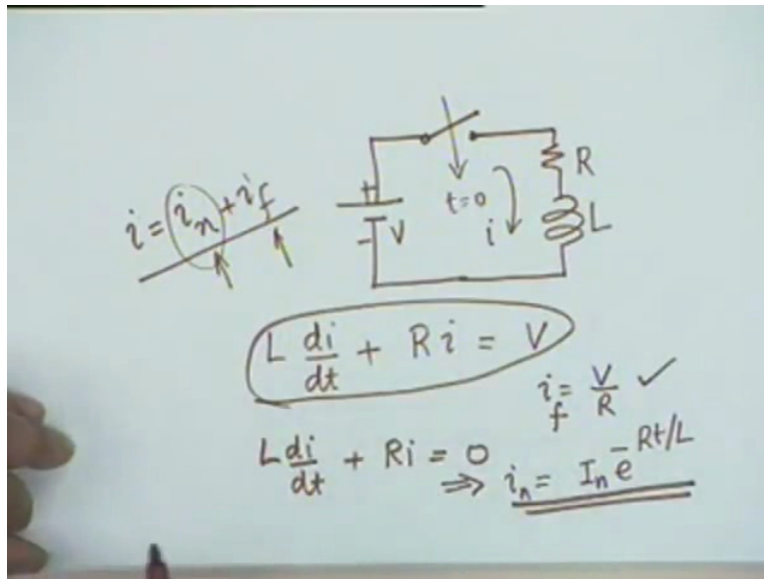 i = i_n + i_f
+
- V
t=0
i
R
L
L di/dt + R i = V
i_f = V/R ✓
L di/dt + Ri = 0
⇒ i_n = I_n e^{-Rt/L}